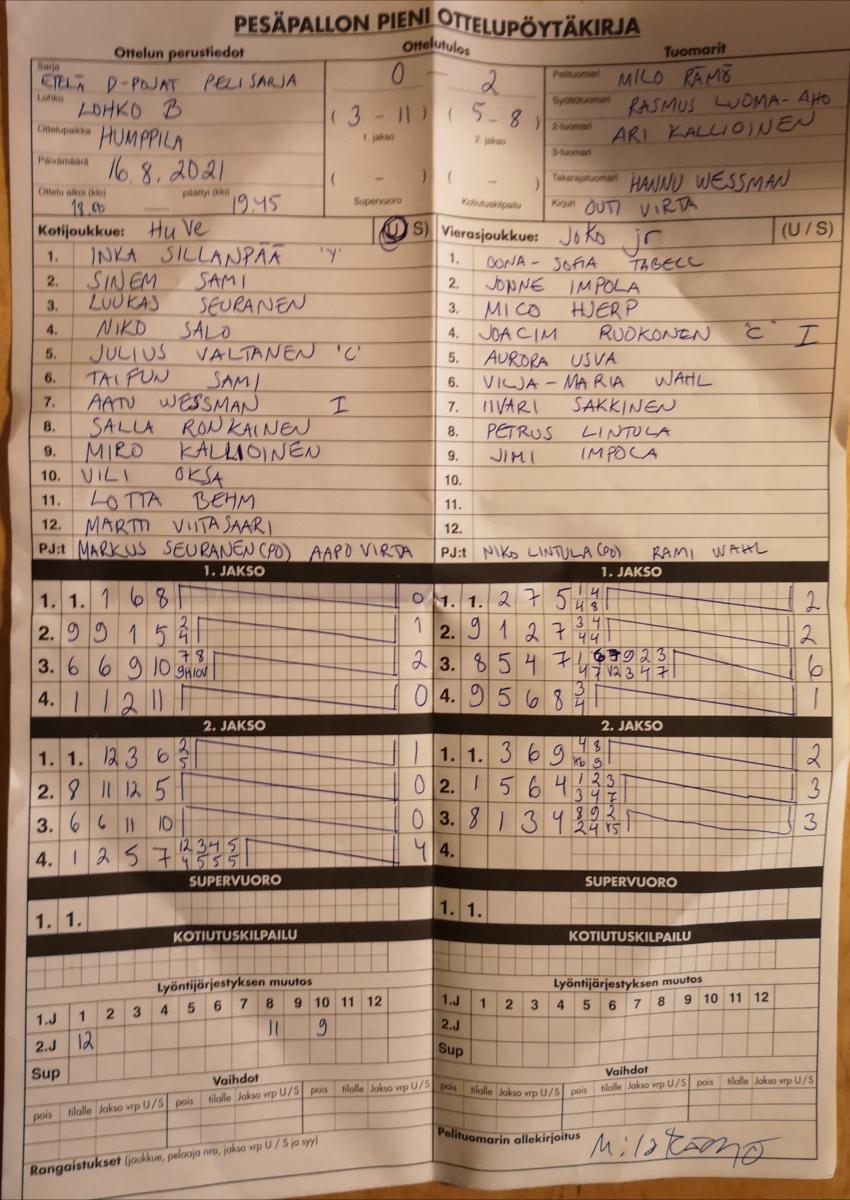 PESÄPALLON PIENI OTTELUPÖYTÄKIRJA
Ottelun perustiedot
Sarja ETELÄ D-POJAT PELISARJA
Lohko LOHKO B
Ottelupaikka HUMPPILA
Päivämäärä 16.8.2021
Ottelu alkoi (klo) päättyi (klo)
18.00 — 19.45
Ottelutulos
0 - 2
(3 - 11) (5 - 8)
1. jakso 2. jakso
( - ) ( - )
Supervuoro Kotiutuskilpailu
Tuomarit
Pelituomari MILO RÄMÖ
Syöttötuomari RASMUS LUOMA-AHO
2-tuomari ARI KALLIOINEN
3-tuomari
Takarajatuomari HANNU WESSMAN
Kirjuri OUTI VIRTA
Kotijoukkue: HuVe (U S)
1. INKA SILLANPÄÄ 'Y'
2. SINEM SAMI
3. LUUKAS SEURANEN
4. NIKO SALO
5. JULIUS VALTANEN 'C'
6. TAIFUN SAMI
7. AATU WESSMAN I
8. SALLA RONKAINEN
9. MIRO KALLIOINEN
10. VILI OKSA
11. LOTTA BEHM
12. MARTTI VIITASAARI
PJ:t MARKUS SEURANEN (PO) AAPO VIRTA
Vierasjoukkue: JoKo jr (U / S)
1. OONA-SOFIA TABELL
2. JONNE IMPOLA
3. MICO HJERP
4. JOACIM RUOKONEN 'C' I
5. AURORA USVA
6. VILJA-MARIA WAHL
7. IIVARI SAKKINEN
8. PETRUS LINTULA
9. JIMI IMPOLA
10.
11.
12.
PJ:t NIKO LINTULA (PO) RAMI WAHL
1. JAKSO
1. 1. 1 6 8 0
2. 9 9 1 5 2 4 1
3. 6 6 9 10 7 8 2
4. 1 1 2 11 0
2. JAKSO
1. 1. 12 3 6 2 5 1
2. 8 11 12 5 0
3. 6 6 11 10 0
4. 1 2 5 7 12 3 4 5 4 5 5 5 4
SUPERVUORO
1. 1.
KOTIUTUSKILPAILU
Lyöntijärjestyksen muutos
1.J 1 2 3 4 5 6 7 8 9 10 11 12
2.J 12 11 9
Sup
Vaihdot
pois tilalle Jakso vrp U / S pois tilalle Jakso vrp U / S pois tilalle Jakso vrp U / S
Rangaistukset (joukkue, pelaaja nro, jakso vrp U / S ja syy)
1. JAKSO
1. 1. 2 7 5 1 4 4 8 2
2. 9 1 2 7 3 4 4 4 2
3. 8 5 4 7 6
4. 9 5 6 8 3 4 1
2. JAKSO
1. 1. 3 6 9 4 8 2
2. 1 5 6 4 1 2 3 3 4 7 3
3. 8 1 3 4 8 9 2 3
4.
SUPERVUORO
1. 1.
KOTIUTUSKILPAILU
Lyöntijärjestyksen muutos
1.J 1 2 3 4 5 6 7 8 9 10 11 12
2.J
Sup
Vaihdot
pois tilalle Jakso vrp U / S pois tilalle Jakso vrp U / S pois tilalle Jakso vrp U / S
Pelituomarin allekirjoitus Milo Rämö